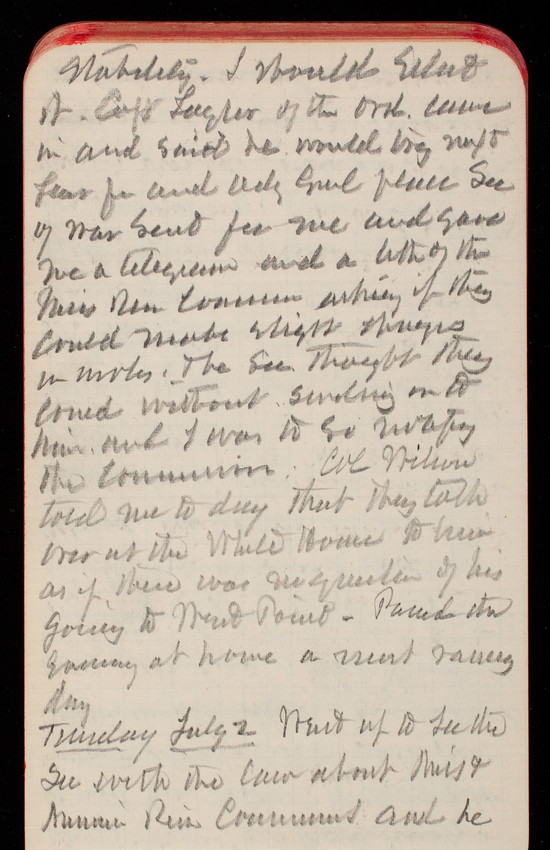 Stability. I should select
it. Capt Taylor of the Ord. came
in and said he would try next
year for and Adj Genl place Sec
of War sent for me and gave
me a telegram and a letter of the
Miss Riv Commission asking if they
could make slight changes
in moles. The Sec. thought they
could without sending on to
him and I was to so notify
the Commission. Col Wilson
told me to day that they talk
over at the White House to him
as if there was no question of his
going to West Point - Passed the
evening at home a most rainy
day
Tuesday July 2 Went up to see the
Sec with the law about Miss &
Riv Commns and he